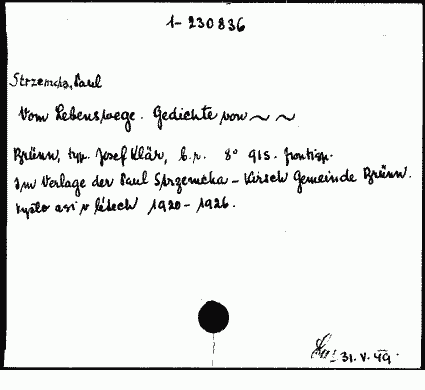 1-230836
Strzemcha, Paul
Vom Lebenswege. Gedichte von ~ ~
Brünn, typ. Josef Klär, b.r. 8° 91s. frontisp.
Im Verlage der Paul Strzemcha - Kirsch Gemeinde Brünn.
Vyšlo asi v létech 1920-1926.
31.V.49.